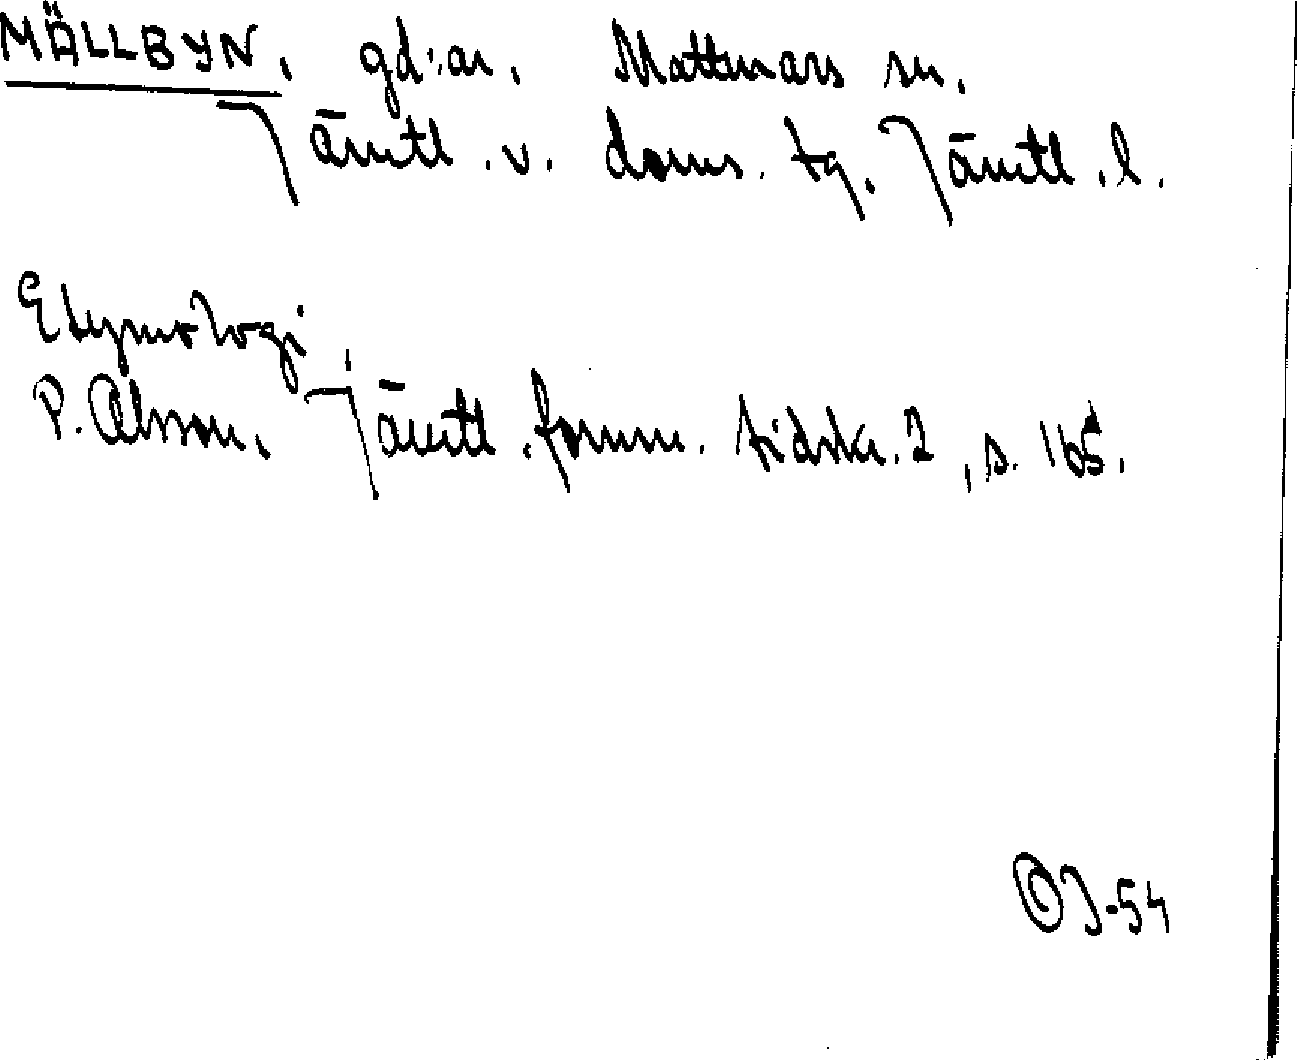 MÄLLBYN. gd:ar. Mattmars sn.
Jämtl. v. doms. tg. Jämtl. l.
Etymologi
P. Olsson. Jämtl. fornm. tidskr. 2, s. 165.
OJ-54